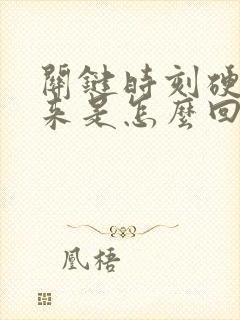 關鍵時刻硬
來是怎麼回
凰梧